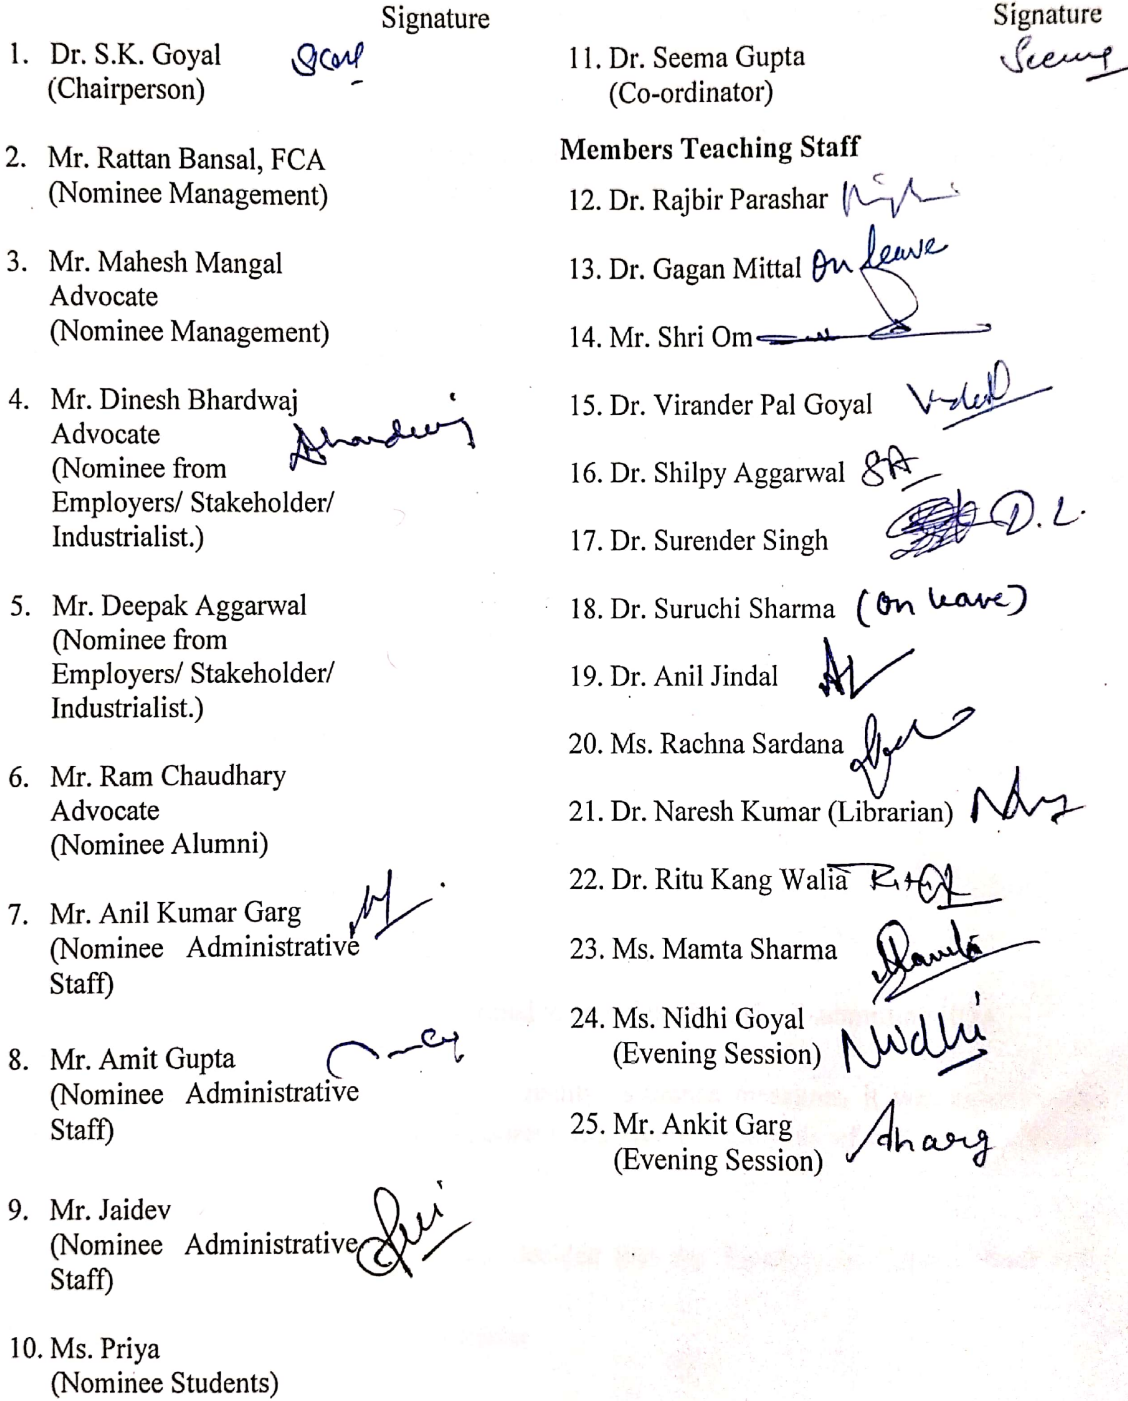 Signature
1. Dr. S.K. Goyal
(Chairperson)
2. Mr. Rattan Bansal, FCA
(Nominee Management)
3. Mr. Mahesh Mangal
Advocate
(Nominee Management)
4. Mr. Dinesh Bhardwaj
Advocate
(Nominee from
Employers/ Stakeholder/
Industrialist.)
5. Mr. Deepak Aggarwal
(Nominee from
Employers/ Stakeholder/
Industrialist.)
6. Mr. Ram Chaudhary
Advocate
(Nominee Alumni)
7. Mr. Anil Kumar Garg
(Nominee Administrative
Staff)
8. Mr. Amit Gupta
(Nominee Administrative
Staff)
9. Mr. Jaidev
(Nominee Administrative
Staff)
10. Ms. Priya
(Nominee Students)
Signature
11. Dr. Seema Gupta Seema
(Co-ordinator)
Members Teaching Staff
12. Dr. Rajbir Parashar
13. Dr. Gagan Mittal On leave
14. Mr. Shri Om
15. Dr. Virander Pal Goyal
16. Dr. Shilpy Aggarwal SA
17. Dr. Surender Singh D.L.
18. Dr. Suruchi Sharma (On leave)
19. Dr. Anil Jindal
20. Ms. Rachna Sardana
21. Dr. Naresh Kumar (Librarian)
22. Dr. Ritu Kang Walia
23. Ms. Mamta Sharma Mamta
24. Ms. Nidhi Goyal Nidhi
(Evening Session)
25. Mr. Ankit Garg
(Evening Session)